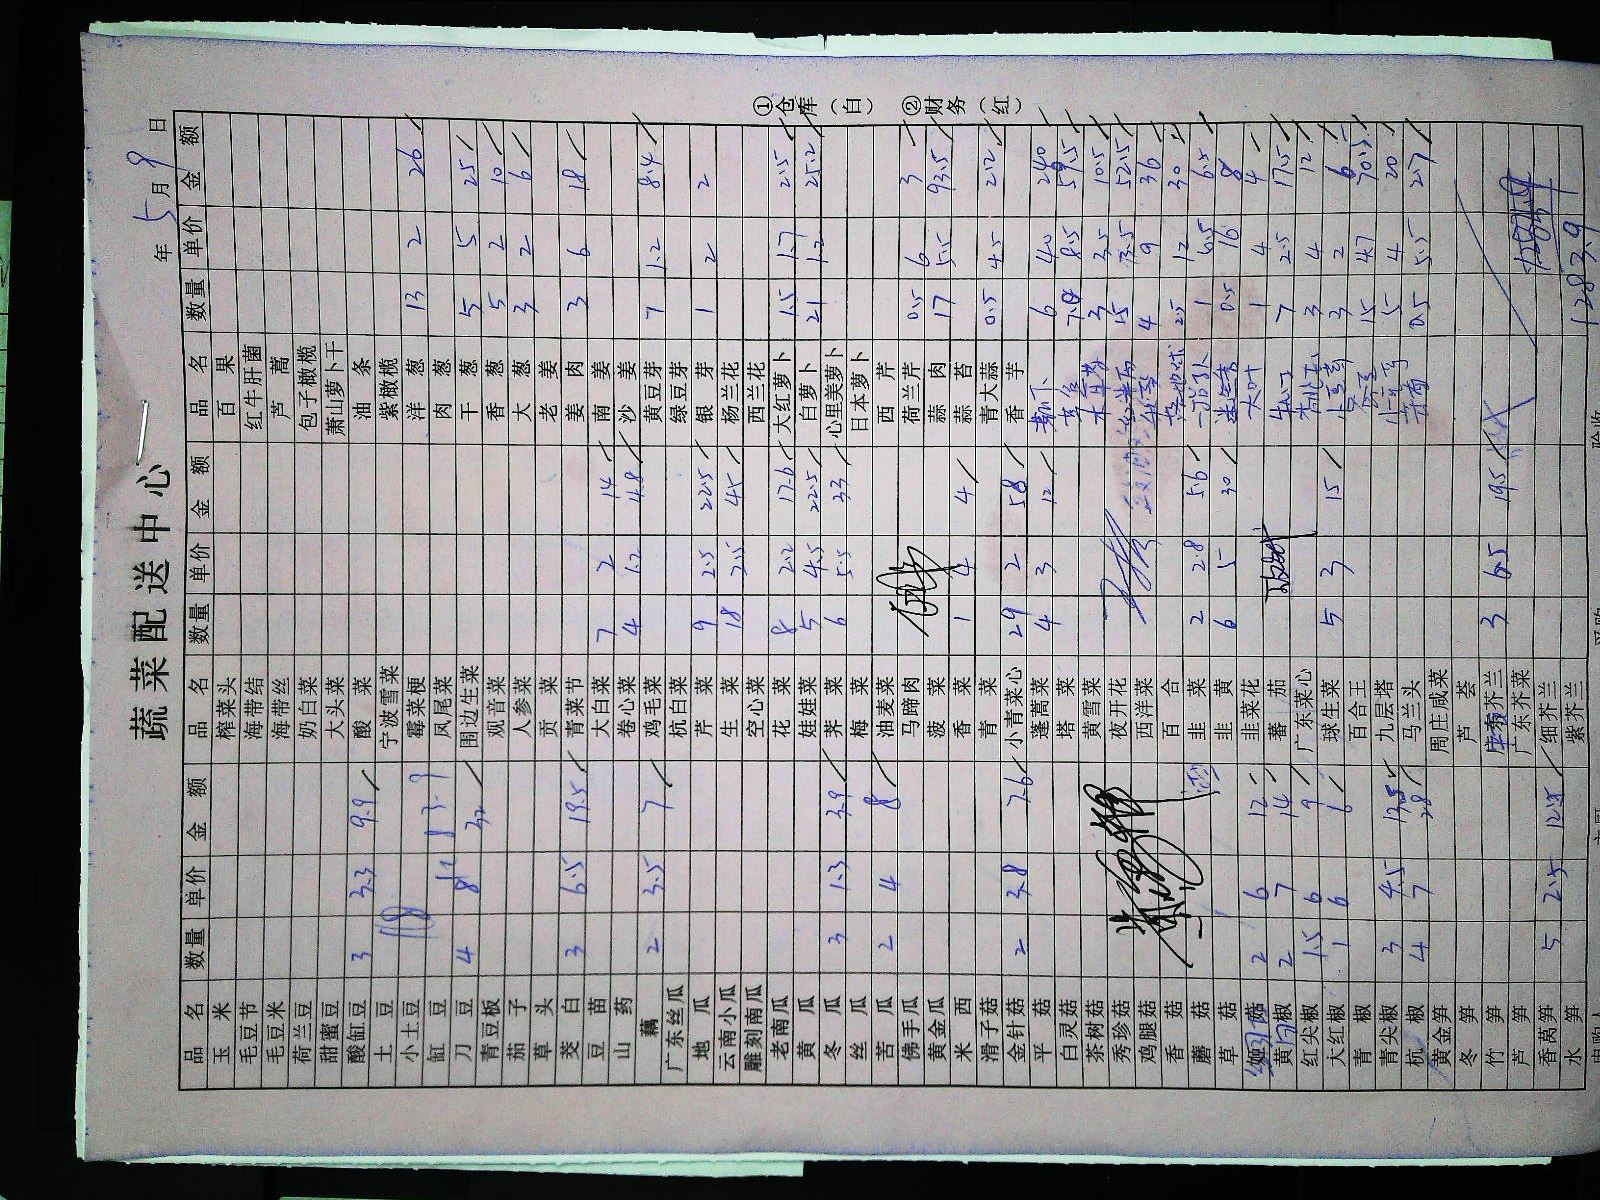 蔬菜配送中心
年 5 月 9 日
品名 数量 单价 金额 品名 数量 单价 金额 品名 数量 单价 金额
玉米 榨菜头 百果
毛豆节 海带结 红牛肝菌
毛豆米 海带丝 芦蒿
荷兰豆 奶白菜 包子橄榄
甜蜜豆 大头菜 萧山萝卜干
酸缸豆 3 3.3 9.9 酸菜 油条
土豆 宁波雪菜 紫橄榄
小土豆 霉菜梗 洋葱 13 2 26
缸豆 凤尾菜 肉葱
刀豆 4 8 32 围边生菜 干葱 5 5 25
青豆板 观音菜 香葱 5 2 10
茄子 人参菜 大葱 3 2 6
草头 贡菜 老姜
茭白 3 6.5 19.5 青菜节 姜肉 3 6 18
豆苗 大白菜 7 2 14 南姜
山药 卷心菜 4 1.2 4.8 沙姜
藕 2 3.5 7 鸡毛菜 黄豆芽 7 1.2 8.4
广东丝瓜 杭白菜 绿豆芽
地瓜 芹菜 9 2.5 22.5 银芽 1 2 2
云南小瓜 生菜 18 2.5 45 杨兰花
雕刻南瓜 空心菜 西兰花
老南瓜 花菜 8 2.2 17.6 大红萝卜 15 1.7 25.5
黄瓜 娃娃菜 5 4.5 22.5 白萝卜 21 1.2 25.2
冬瓜 3 1.3 3.9 荠菜 6 5.5 33 心里美萝卜
丝瓜 梅菜 日本萝卜
苦瓜 2 4 8 油麦菜 西芹
佛手瓜 马蹄肉 荷兰芹 0.5 6 3
黄金瓜 菠菜 蒜肉 17 5.5 93.5
米西 香菜 1 4 4 蒜苔
滑子菇 青菜 青大蒜 0.5 4.5 2.2
金针菇 2 3.8 7.6 小青菜心 29 2 58 香芋
平菇 蓬蒿菜 4 3 12 6 40 240
白灵菇 塔菜 8.5 59.5
茶树菇 黄雪菜 3 3.5 10.5
秀珍菇 夜开花 15 3.5 52.5
鸡腿菇 西洋菜 4 9 36
香菇 百合 2.5 12 30
蘑菇 韭菜 2 2.8 5.6 1 6.5 6.5
草菇 韭黄 6 5 30 0.5 16 8
菇 2 6 12 韭菜花 大叶 1 4 4
黄椒 2 7 14 蕃茄 7 2.5 17.5
红尖椒 1.5 6 9 广东菜心 3 4 12
大红椒 1 6 6 球生菜 5 3 15 3 2 6
青椒 百合王 15 4.7 70.5
青尖椒 3 4.5 13.5 九层塔 5 4 20
杭椒 4 7 28 马兰头 0.5 5.5 2.7
黄金笋 周庄咸菜
冬笋 芦荟
竹笋 广东芥兰 3 65 195
芦笋 广东芥菜
香莴笋 5 2.5 12.5 细芥兰
水笋 紫芥兰 1283.9
①仓库（白） ②财务（红）